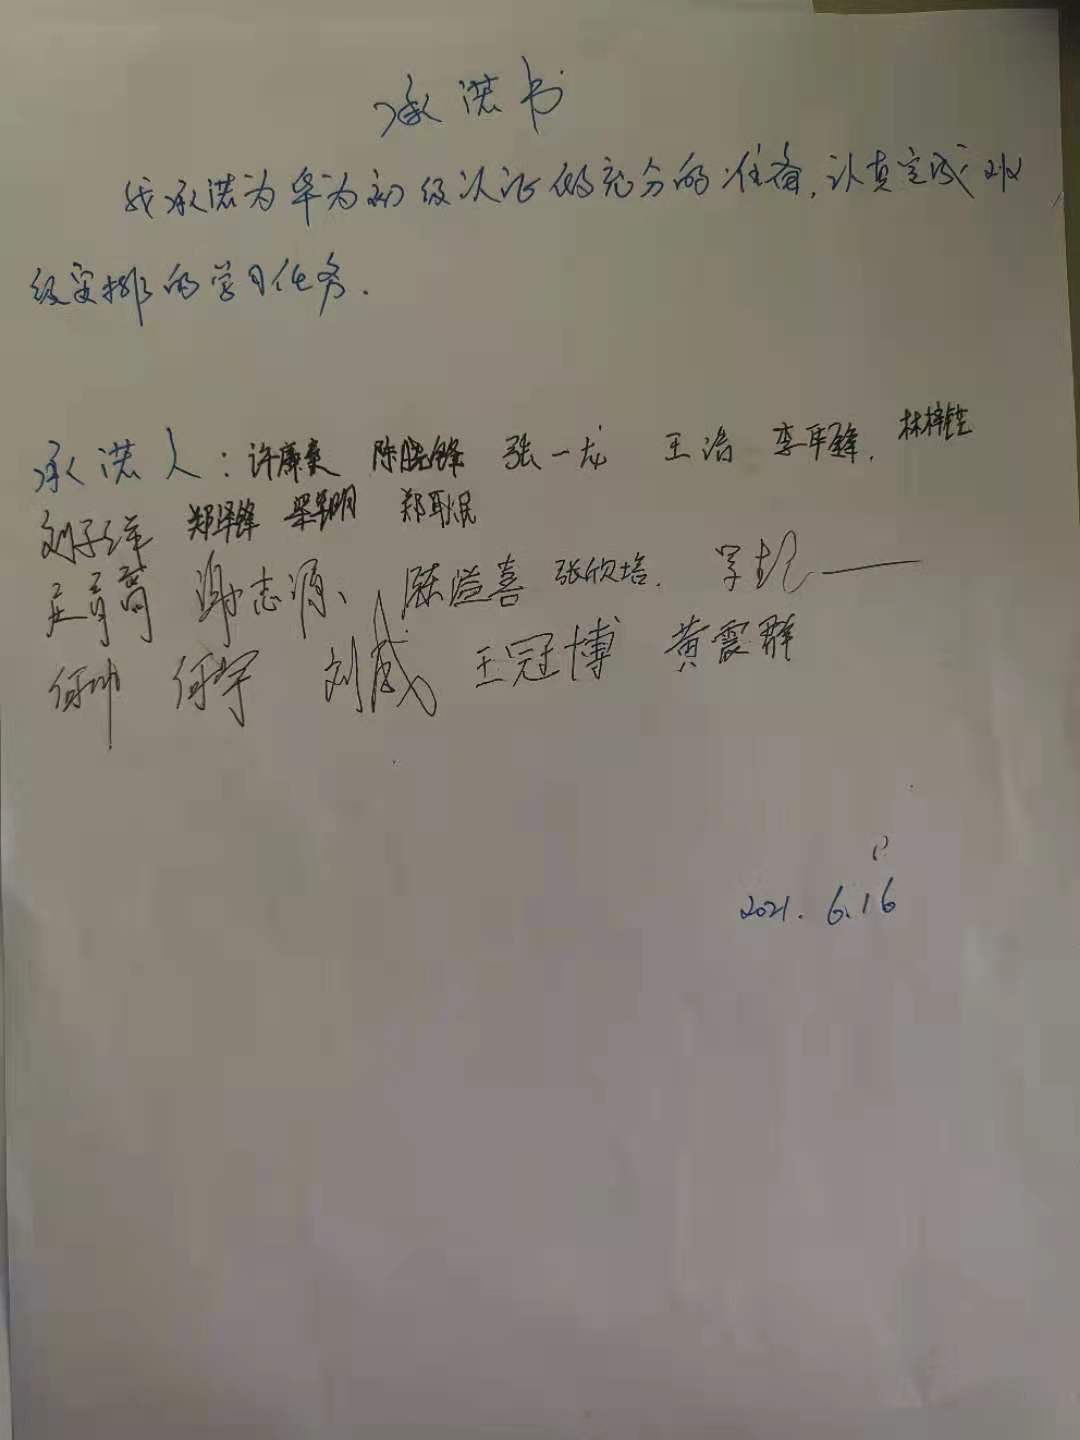 承诺书
我承诺为华为初级认证做充分的准备,认真完成班
级安排的学习任务.
承诺人: 许廉爽 陈晓锋 张一龙 王浩 李军锋. 林梓铨
刘子洋 郑泽锋 梁军明 郑耿泯
谢志源、 陈溢喜 张欣培.
何帅 何宇 刘威 王冠博 黄震群
2021. 6.16